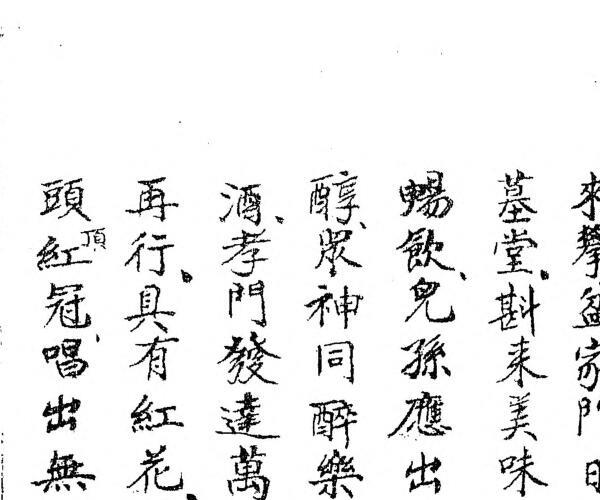 來攀盆家門日
墓堂。斟来美味
暢飲、兒孫應出
醇、眾神同醉樂
酒、孝門發達萬
再行。具有紅花、
頭紅頂冠、唱出無